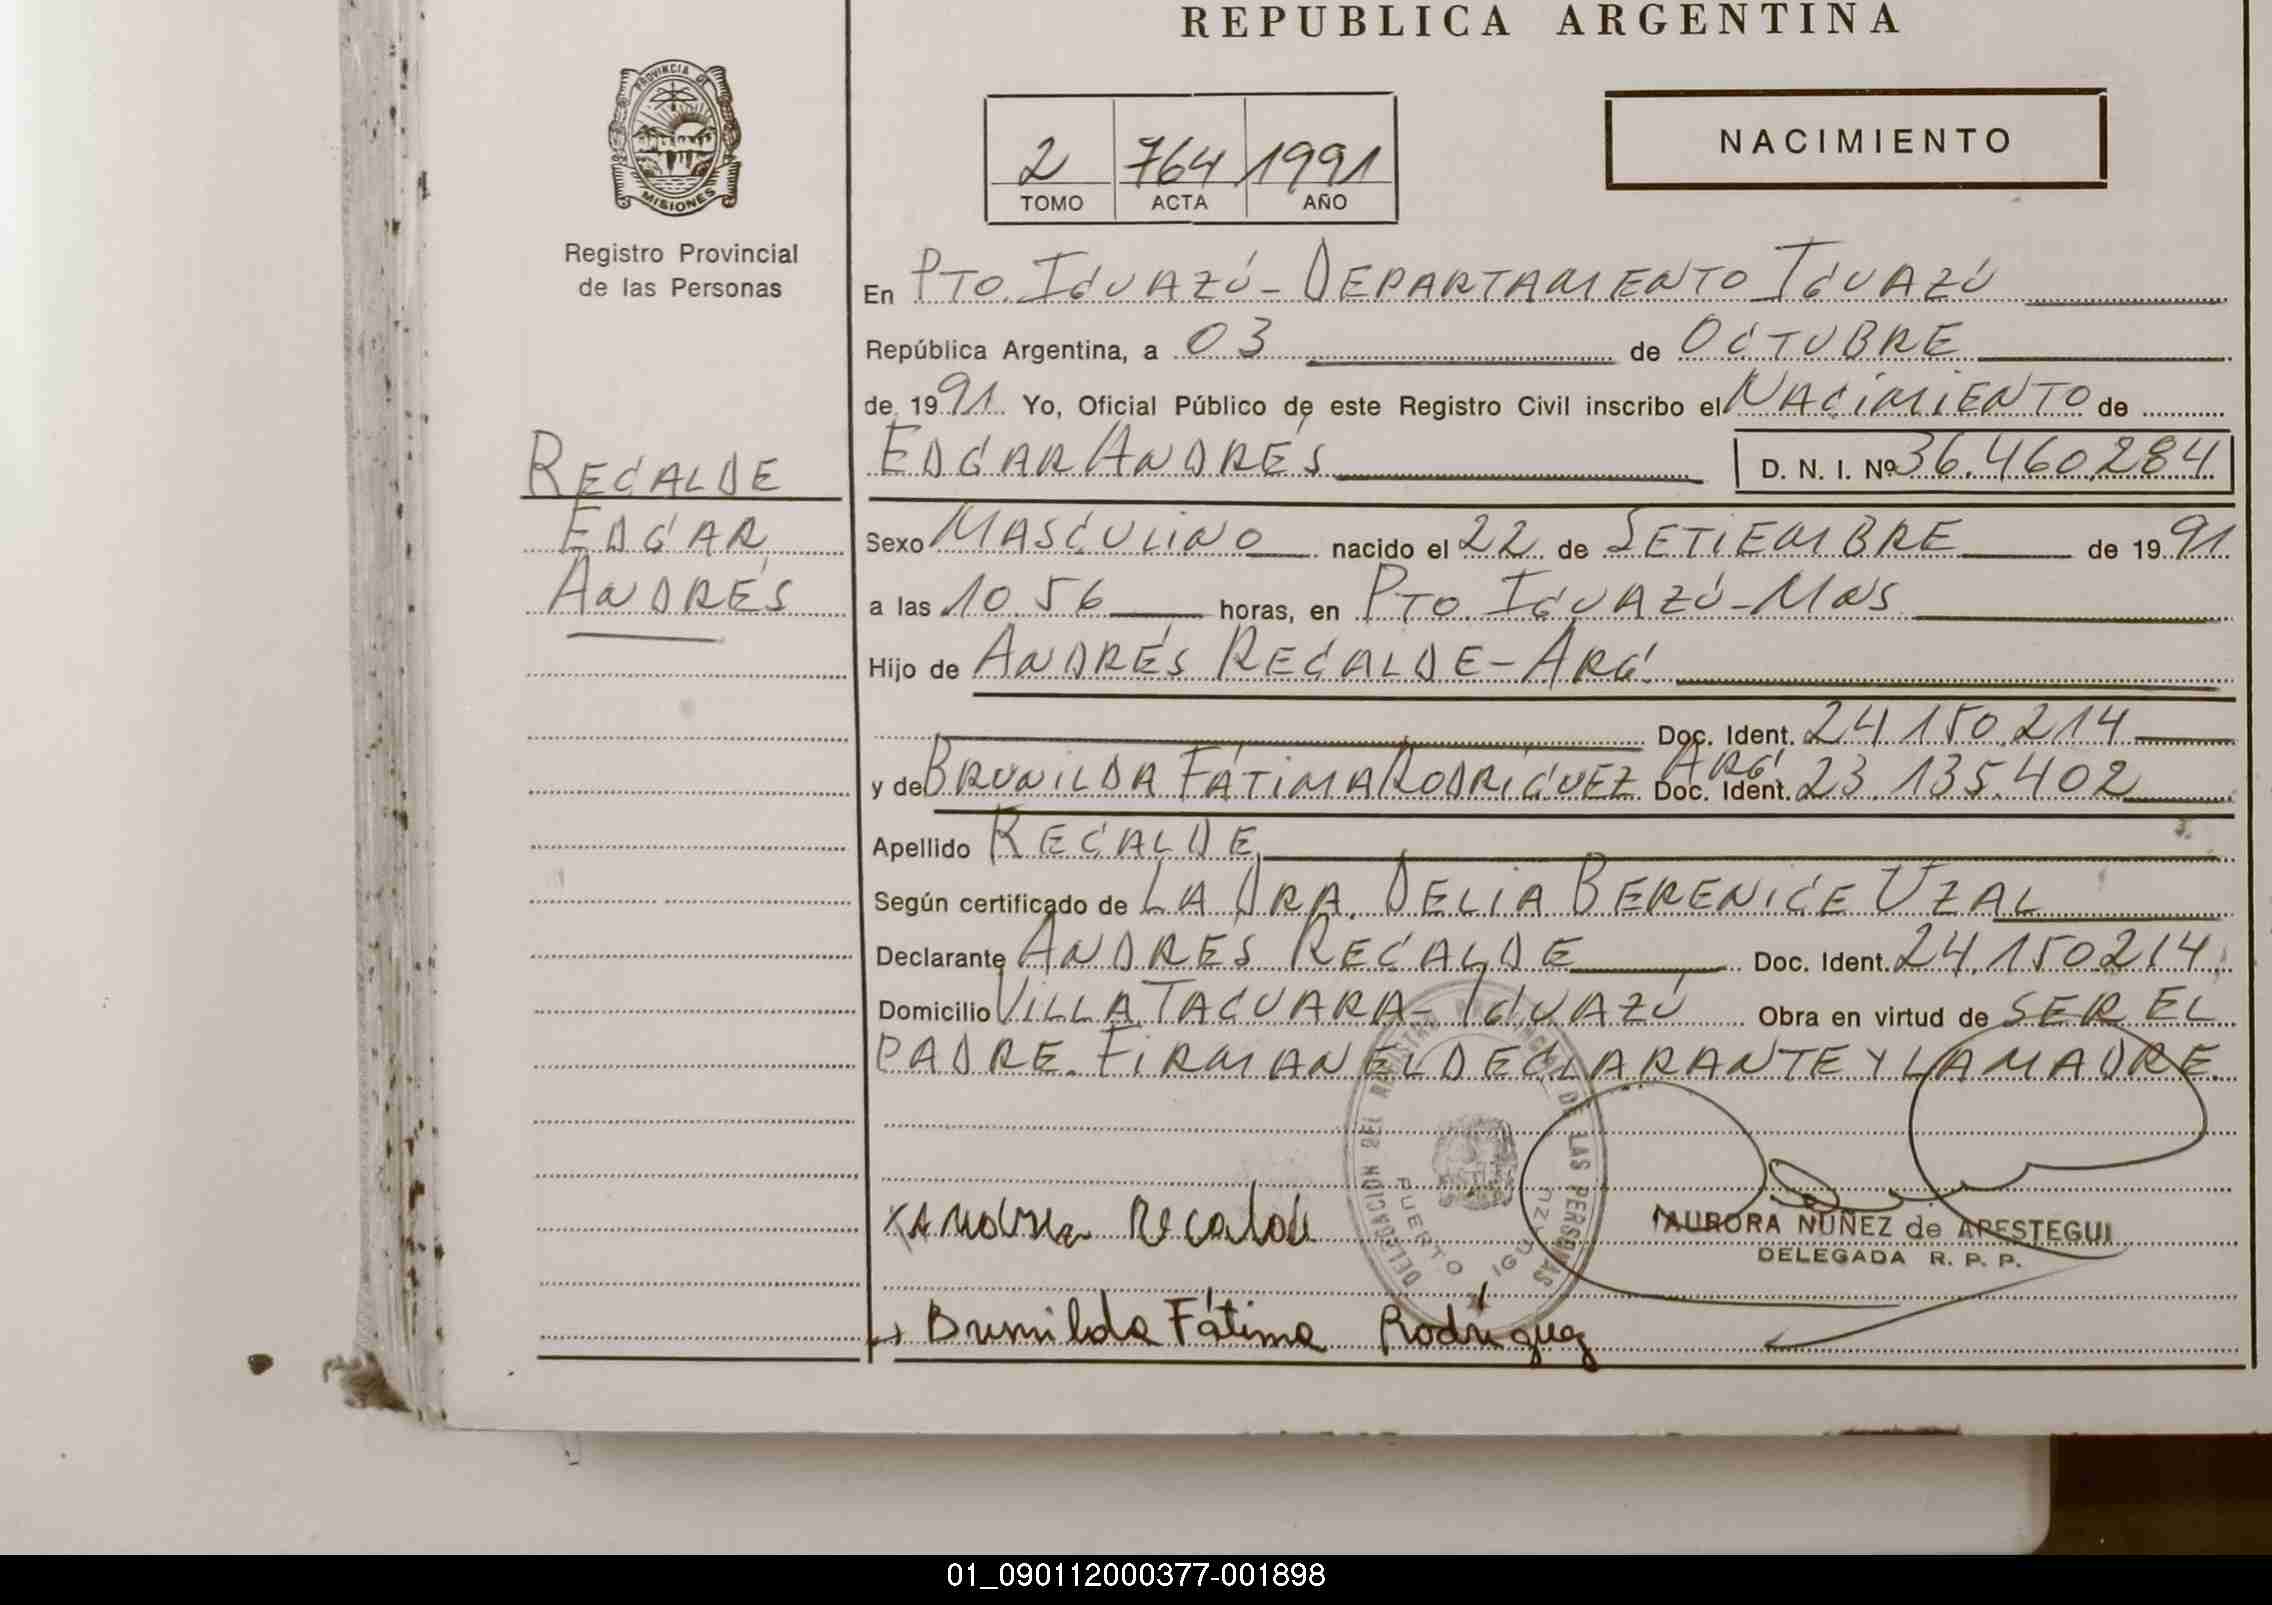 REPUBLICA ARGENTINA
PROVINCIA DE
MISIONES
Registro Provincial
de las Personas
2 764 1991
TOMO ACTA AÑO
NACIMIENTO
En PTO. IGUAZÚ - DEPARTAMENTO IGUAZÚ
República Argentina, a 03 de OCTUBRE
de 1991 Yo, Oficial Público de este Registro Civil inscribo el NACIMIENTO de
RECALDE
EDGAR ANDRÉS D. N. I. Nº 36.460.284
EDGAR
Sexo MASCULINO nacido el 22 de SETIEMBRE de 1991
ANDRÉS
a las 10.56 horas, en PTO. IGUAZÚ - MNS
Hijo de ANDRÉS RECALDE - ARG.
Doc. Ident. 24.150.214
y de BRUNILDA FÁTIMA RODRÍGUEZ ARG. Doc. Ident. 23.135.402
Apellido RECALDE
Según certificado de LA DRA. DELIA BERENICE UZAL
Declarante ANDRÉS RECALDE Doc. Ident. 24.150.214
Domicilio VILLA TACUARA - IGUAZÚ Obra en virtud de SER EL
PADRE. FIRMAN EL DECLARANTE Y LA MADRE.
DELEGACION DEL REGISTRO PROVINCIAL DE LAS PERSONAS
PUERTO IGUAZU
Recalde
AURORA NUÑEZ de ARESTEGUI
DELEGADA R. P. P.
Brunilda Fátima Rodríguez
01_090112000377-001898